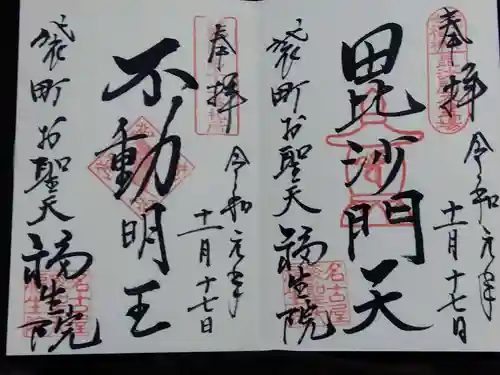 奉拝
令和元年
十一月十七日
毘沙門天
袋町お聖天
福生院
名古屋
奉拝
令和元年
十一月十七日
不動明王
袋町お聖天
福生院
名古屋